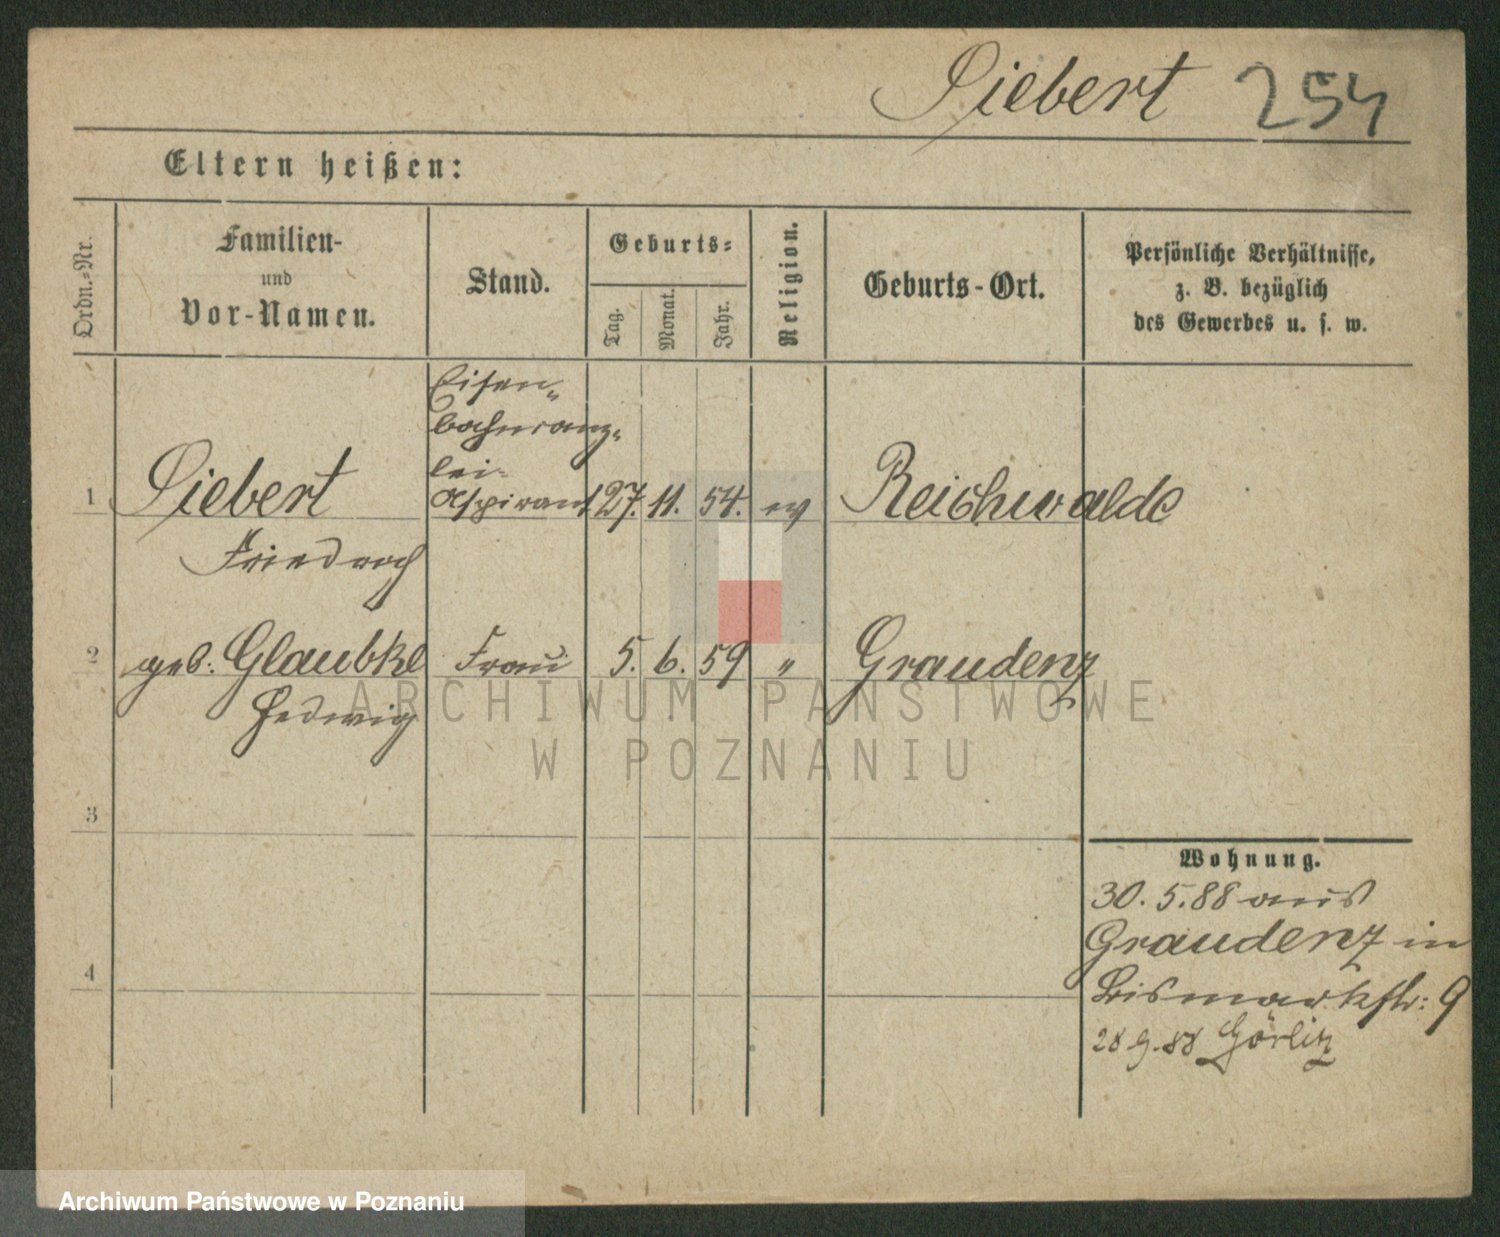 Siebert 254
Eltern heißen:
Ordn.-Nr.
Familien-
und
Vor-Namen.
Stand.
Geburts-
Tag.
Monat.
Jahr.
Religion.
Geburts-Ort.
Persönliche Verhältnisse,
z. B. bezüglich
des Gewerbes u. s. w.
Eisen-
bahncanz-
lei-
1 Siebert Aspirant 27. 11. 54. ev Reichwalde
Friedrich
2 geb: Glaubke Frau 5. 6. 59 " Graudenz
Hedwig
ARCHIWUM PAŃSTWOWE
W POZNANIU
3
Wohnung.
30. 5. 88 aus
Graudenz in
4
Bismarkstr: 9
28 9. 88 Görlitz
Archiwum Państwowe w Poznaniu